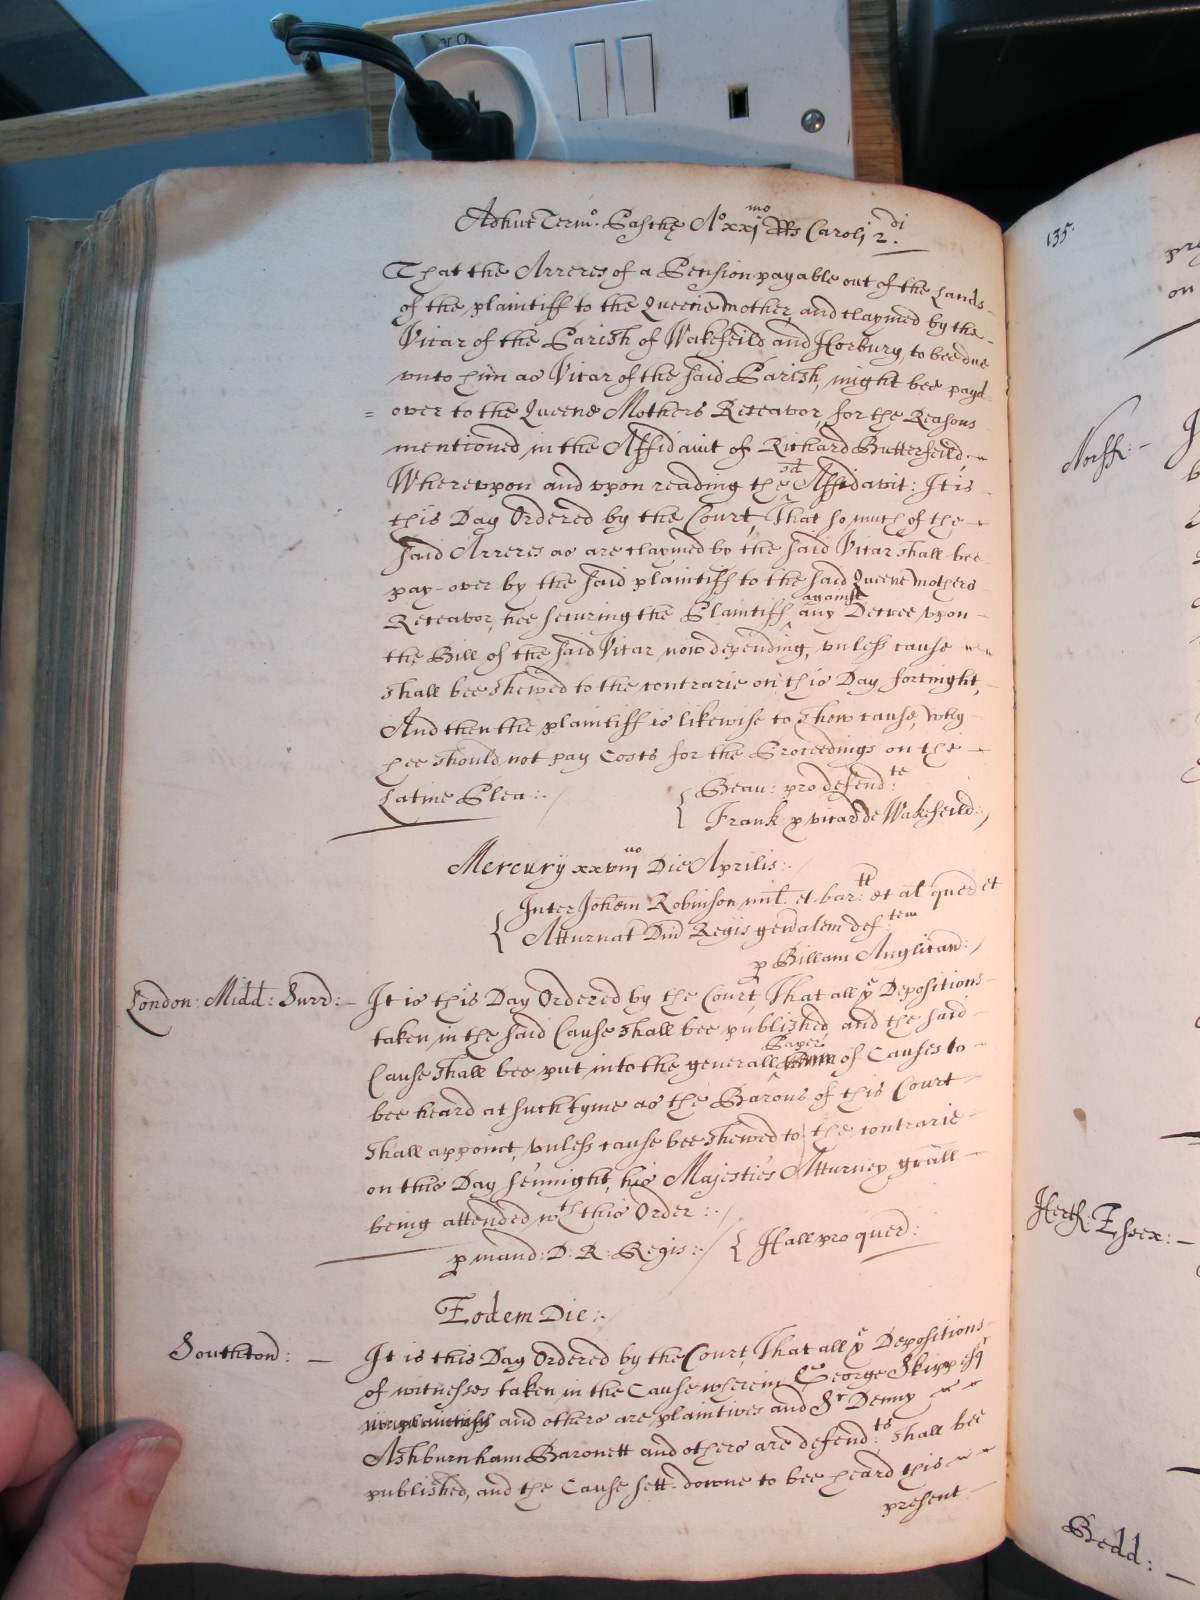 Adhuc Term:o Paschę Ao xxjmo Rs Caroli 2.di
That the Arreres of a Pension payable out of the Lands
of the plaintiff to the Queene mother, and claymed by the
Vicar of the Parish of Wakefeild and Horbury, to bee due
vnto him as Vicar of the said Parish, might bee payd
= over to the Queene Mothers Receavor, for the Reasons
mentioned in the Affidavit of Richard Butterfeild:
Wherevpon and vpon reading the sd Affidavit: It is
this Day Ordered by the Court, That so much of the
said Arreres as are claymed by the said Vicar shall bee
pay-over by the said plaintiff to the said Queene mothers
Receavor, hee securing the Plaintiff against any Decree vpon
the Bill of the said Vicar now depending, vnless cause
shall bee shewed to the contrarie on this Day fortnight,
And then the plaintiff is likewise to shew cause, why
hee should not pay Costs for the Proceedings on the
Latine Plea:.
Beau: pro defend:te
Frank: p vicar de Wakefeild:,
Mercurij xxviijuo Die Aprilis:.
Inter Johem Robinson mil. et bar:tt et al quer et
Atturnat Dni Regis genralem def:tem
p Billam Anglican:
London: Midd: Surr: It is this Day Ordered by the Court, That all ye Depositions
taken in the said Cause shall bee published, and the said
Cause shall bee put into the generall Paper of Causes to
bee heard at such tyme as the Barons of this Court
shall appoint, vnless cause bee shewed to the contrarie
on this Day sennight, his Majesties Atturney grall
being attended wth this Order:.
p mand: D: R: Regis:. Hall pro quer:
Eodem Die:.
Southton: It is this Day Ordered by the Court, That all ye Depositions
of witnesses taken in the Cause wherein George Skipp esqr
and others are plaintives and Sr Denny
Ashburnham Baronett and others are defend:ts shall bee
published, and the Cause sett-downe to bee heard this
present
135.
on
Norff:
Hertf: Essex:
Bedd: